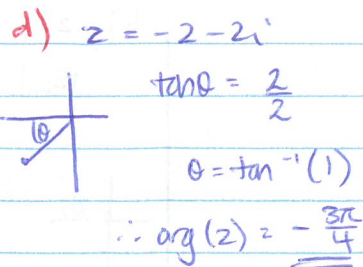 d) z = -2 - 2i
tanθ = 2/2
θ
θ = tan⁻¹(1)
∴ arg(z) = - 3π/4